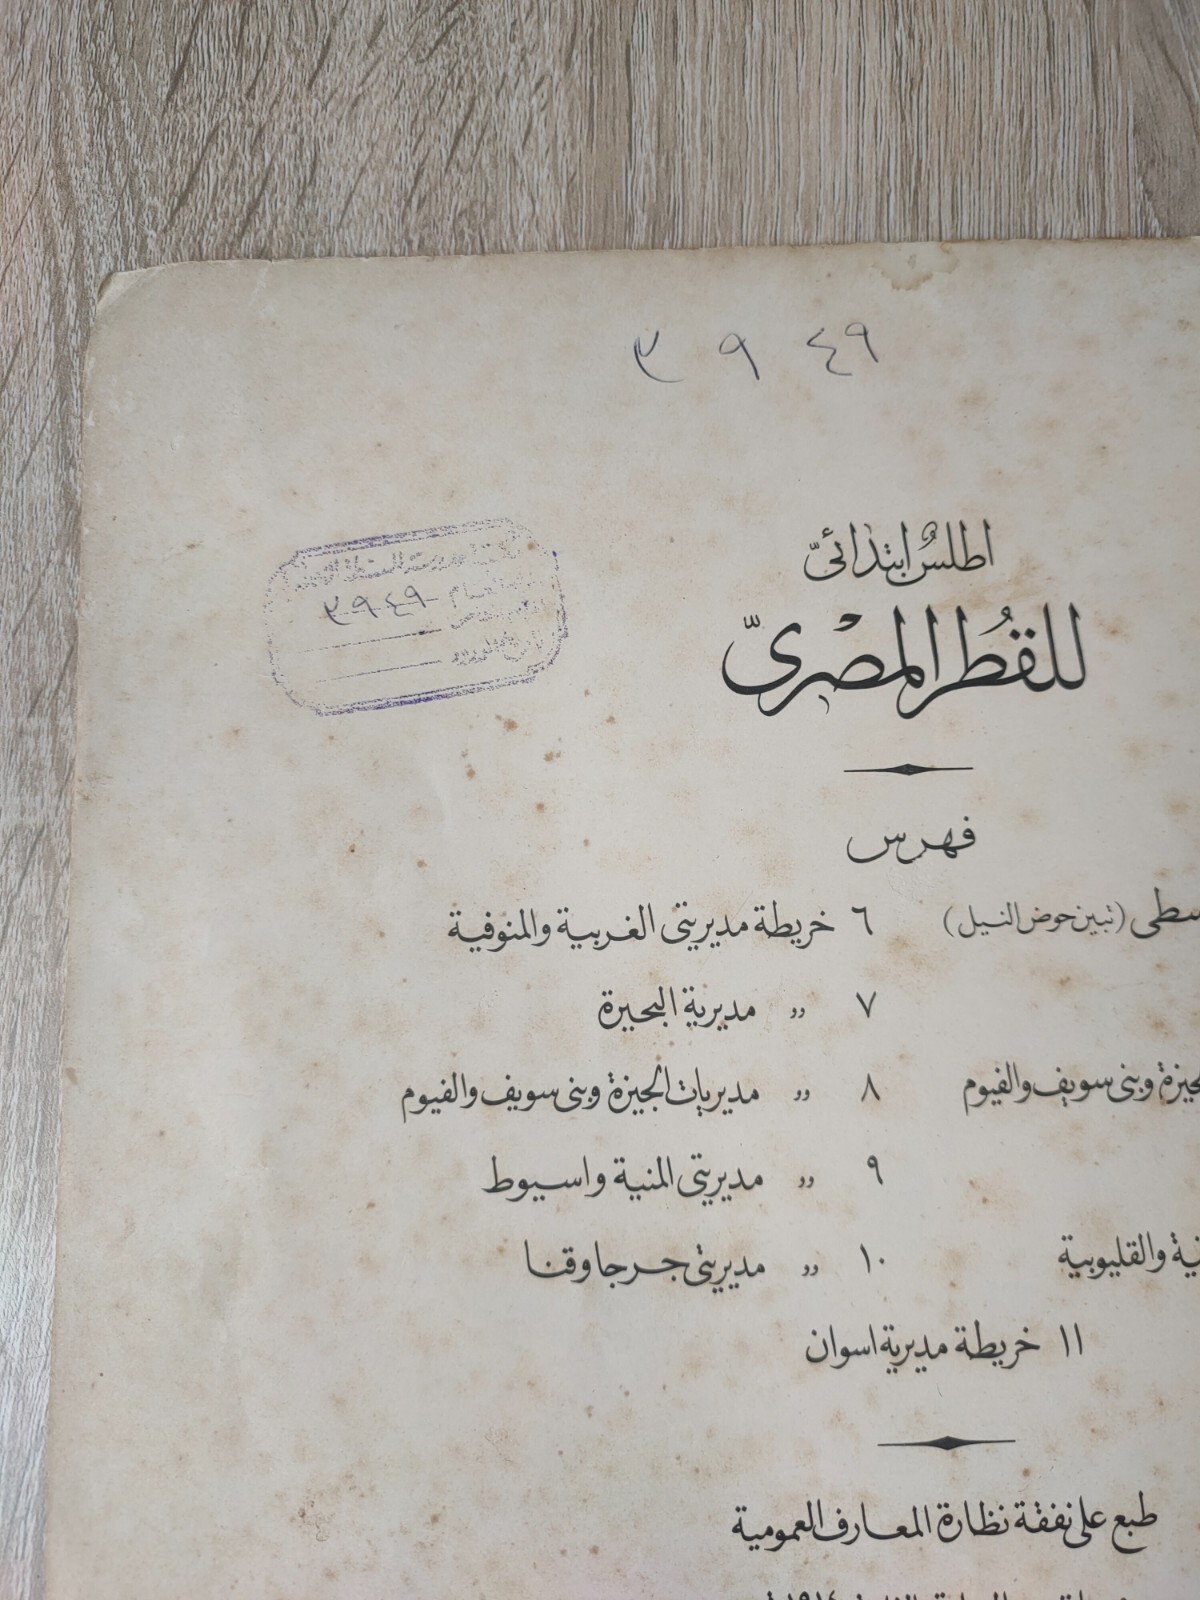 ٣ ٩ ٤٩
اطلس ابتدائىّ
للقُطر المصرىّ
٣٩٤٩
فهرس
(تبين حوض النيل)
٦ خريطة مديريتى الغربية والمنوفية
٧ " مديرية البحيرة
وبنى سويف والفيوم
٨ " مديريات الجيزة وبنى سويف والفيوم
٩ " مديريتى المنية واسيوط
والقليوبية
١٠ " مديريتى جرجا وقنا
١١ خريطة مديرية اسوان
طبع على نفقة نظارة المعارف العمومية